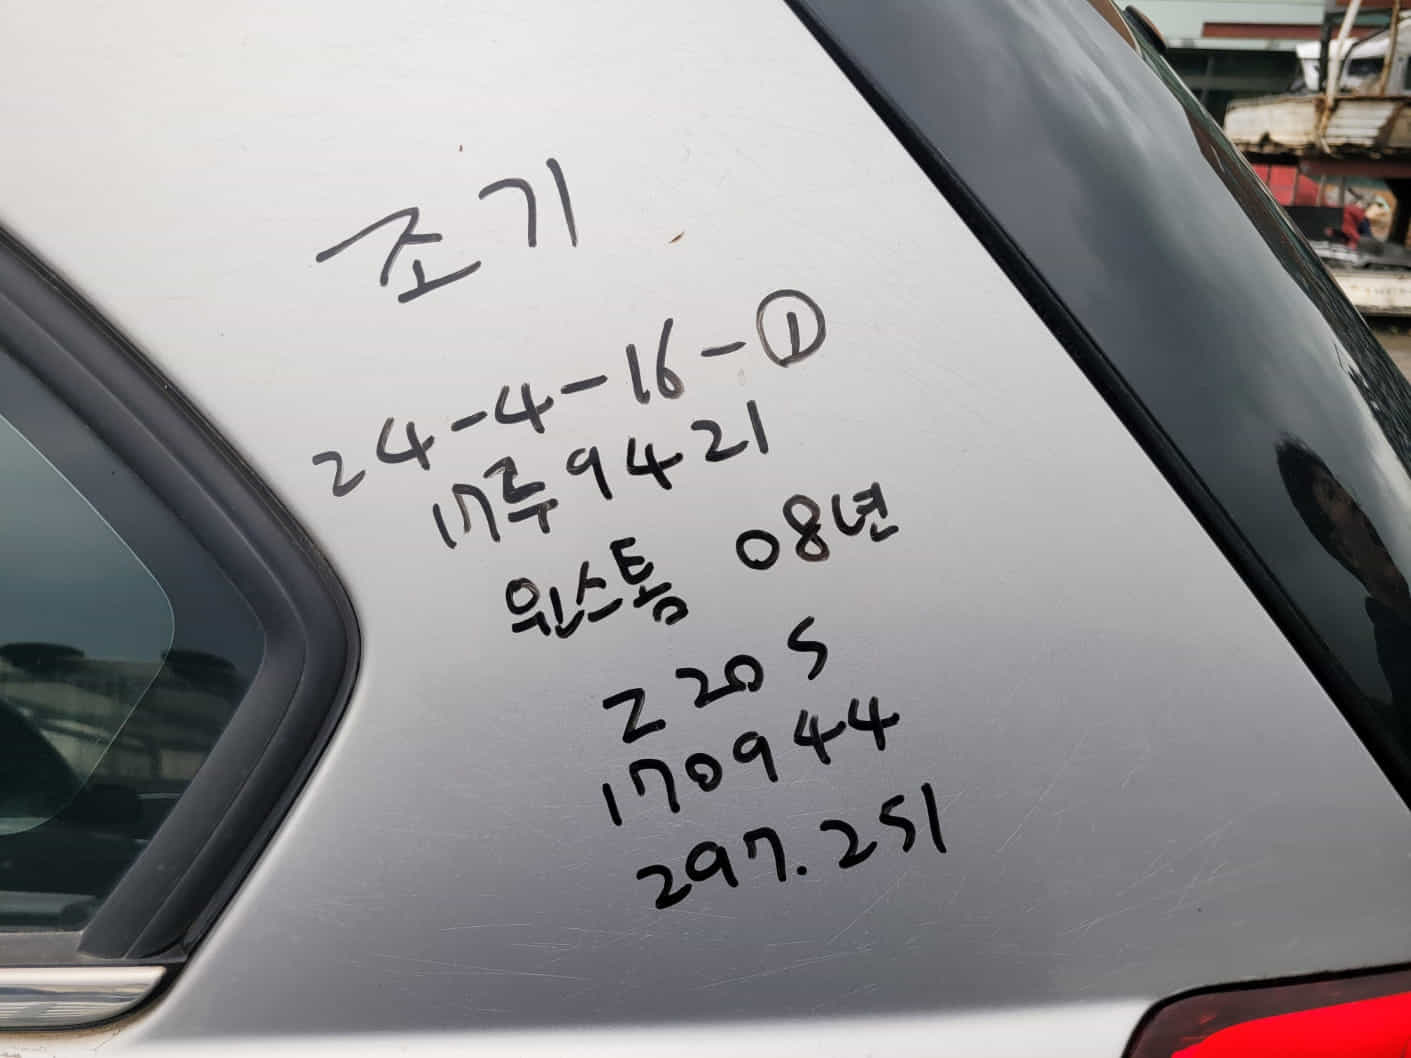 조기
24-4-16-①
17루9421
윈스톰 08년
Z20S
170944
297.251